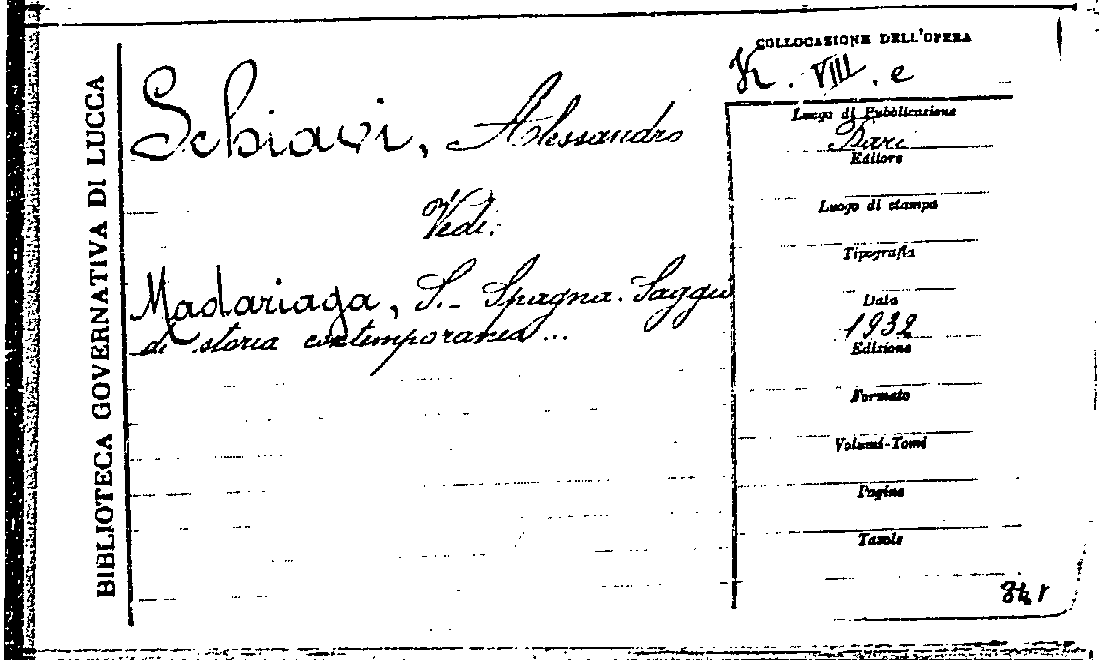 BIBLIOTECA GOVERNATIVA DI LUCCA
Schiavi, Alessandro
Vedi:
Madariaga, S. - Spagna. Saggio
di storia contemporanea...
COLLOCAZIONE DELL'OPERA
VIII. e
Luogo di Pubblicazione
Bari
Editore
Luogo di stampa
Tipografia
Data
1932
Edizione
Formato
Volumi-Tomi
Pagine
Tavole